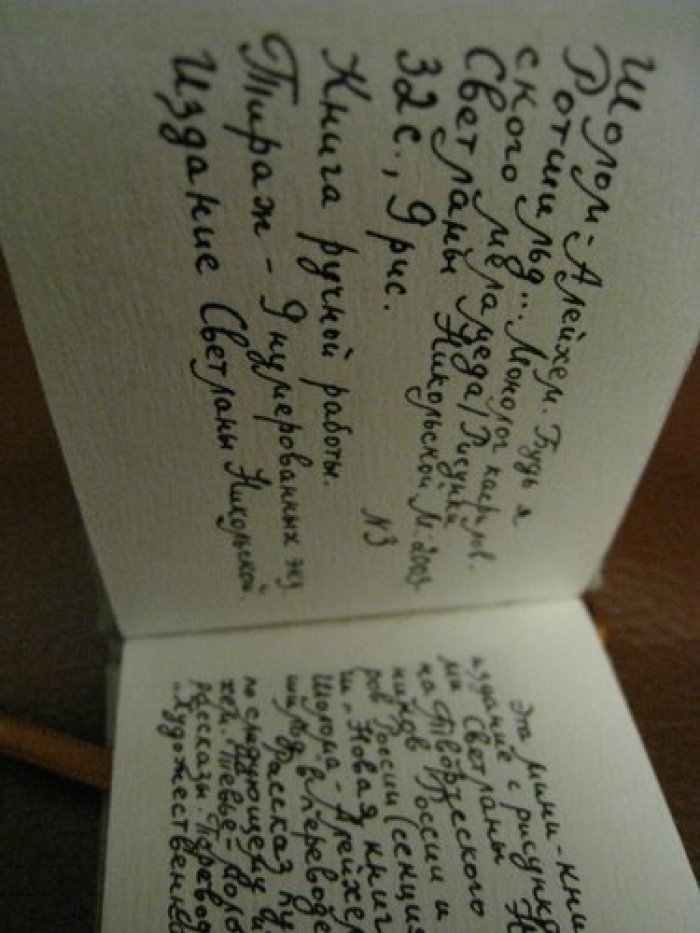 Шолом-Алейхем. Будь я
Ротшильд... Монолог касрилов-
ского меламеда/Рисунки
Светланы Никольской М.-2003.
32с., 9 рис.
N3
Книга ручной работы.
Тираж - 9 нумерованных экз
Издание Светланы Никольской.
Эта мини-кни
издание с рисунка
ми Светланы Н
на Творческого
ников России и
ров России (секция
и "Новая книг
Шолома-Алейхем
шильд в переводе
Рассказ пу
по следующему и
хем. Тевье-моло
рассказы. Перевод
"Художественн